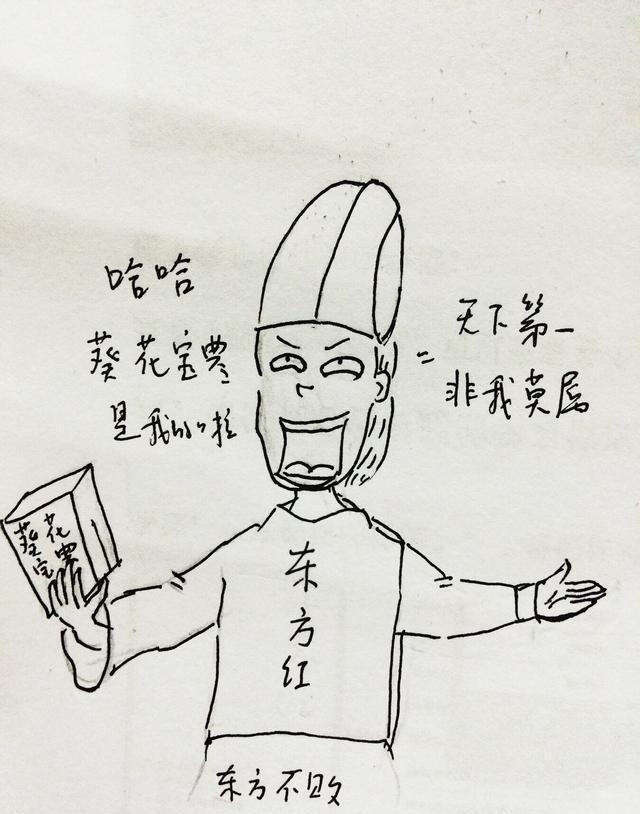 哈哈
葵花宝典
是我的啦
天下第一
非我莫属
葵花
宝典
东方红
东方不败